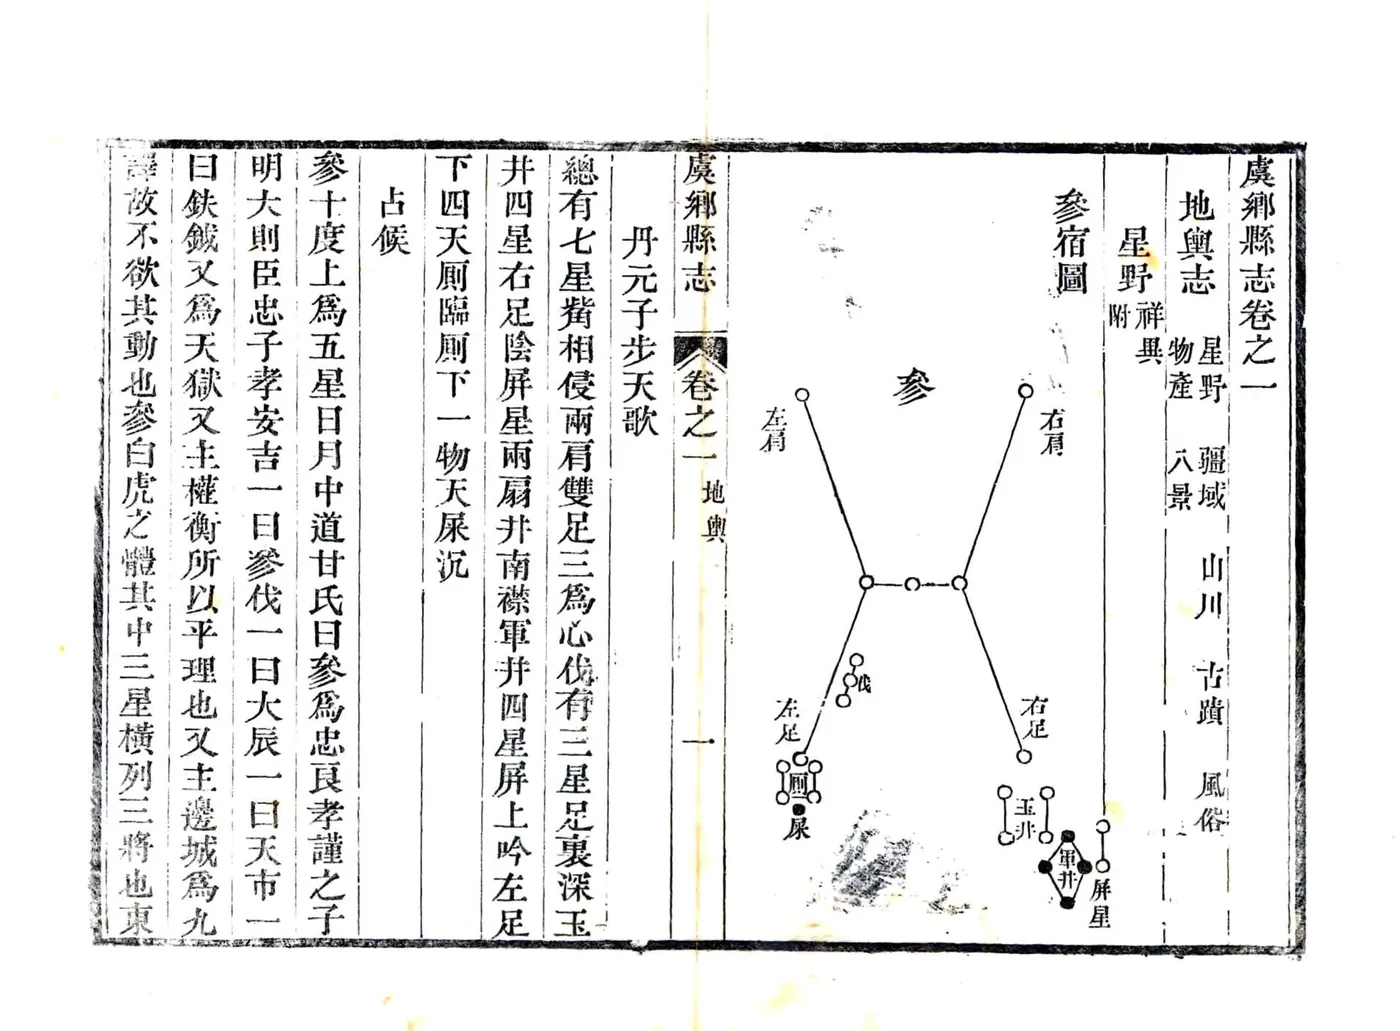 虞鄉縣志卷之一
地輿志
星野 疆域 山川 古蹟 風俗
物產 八景
星野
祥異
附
參宿圖
參
右肩
左肩
伐
右足
左足
厠
屎
玉井
軍井
屏星
虞鄉縣志
卷之一
地輿
一
丹元子步天歌
總有七星觜相侵兩肩雙足三爲心伐有三星足裏深玉
井四星右足陰屏星兩扇井南襟軍井四星屏上吟左足
下四天厠臨厠下一物天屎沉
占候
參十度上爲五星日月中道甘氏曰參爲忠良孝謹之子
明大則臣忠子孝安吉一曰參伐一曰大辰一曰天市一
曰鈇鉞又爲天獄又主權衡所以平理也又主邊城爲九
譯故不欲其動也參白虎之體其中三星橫列三將也東